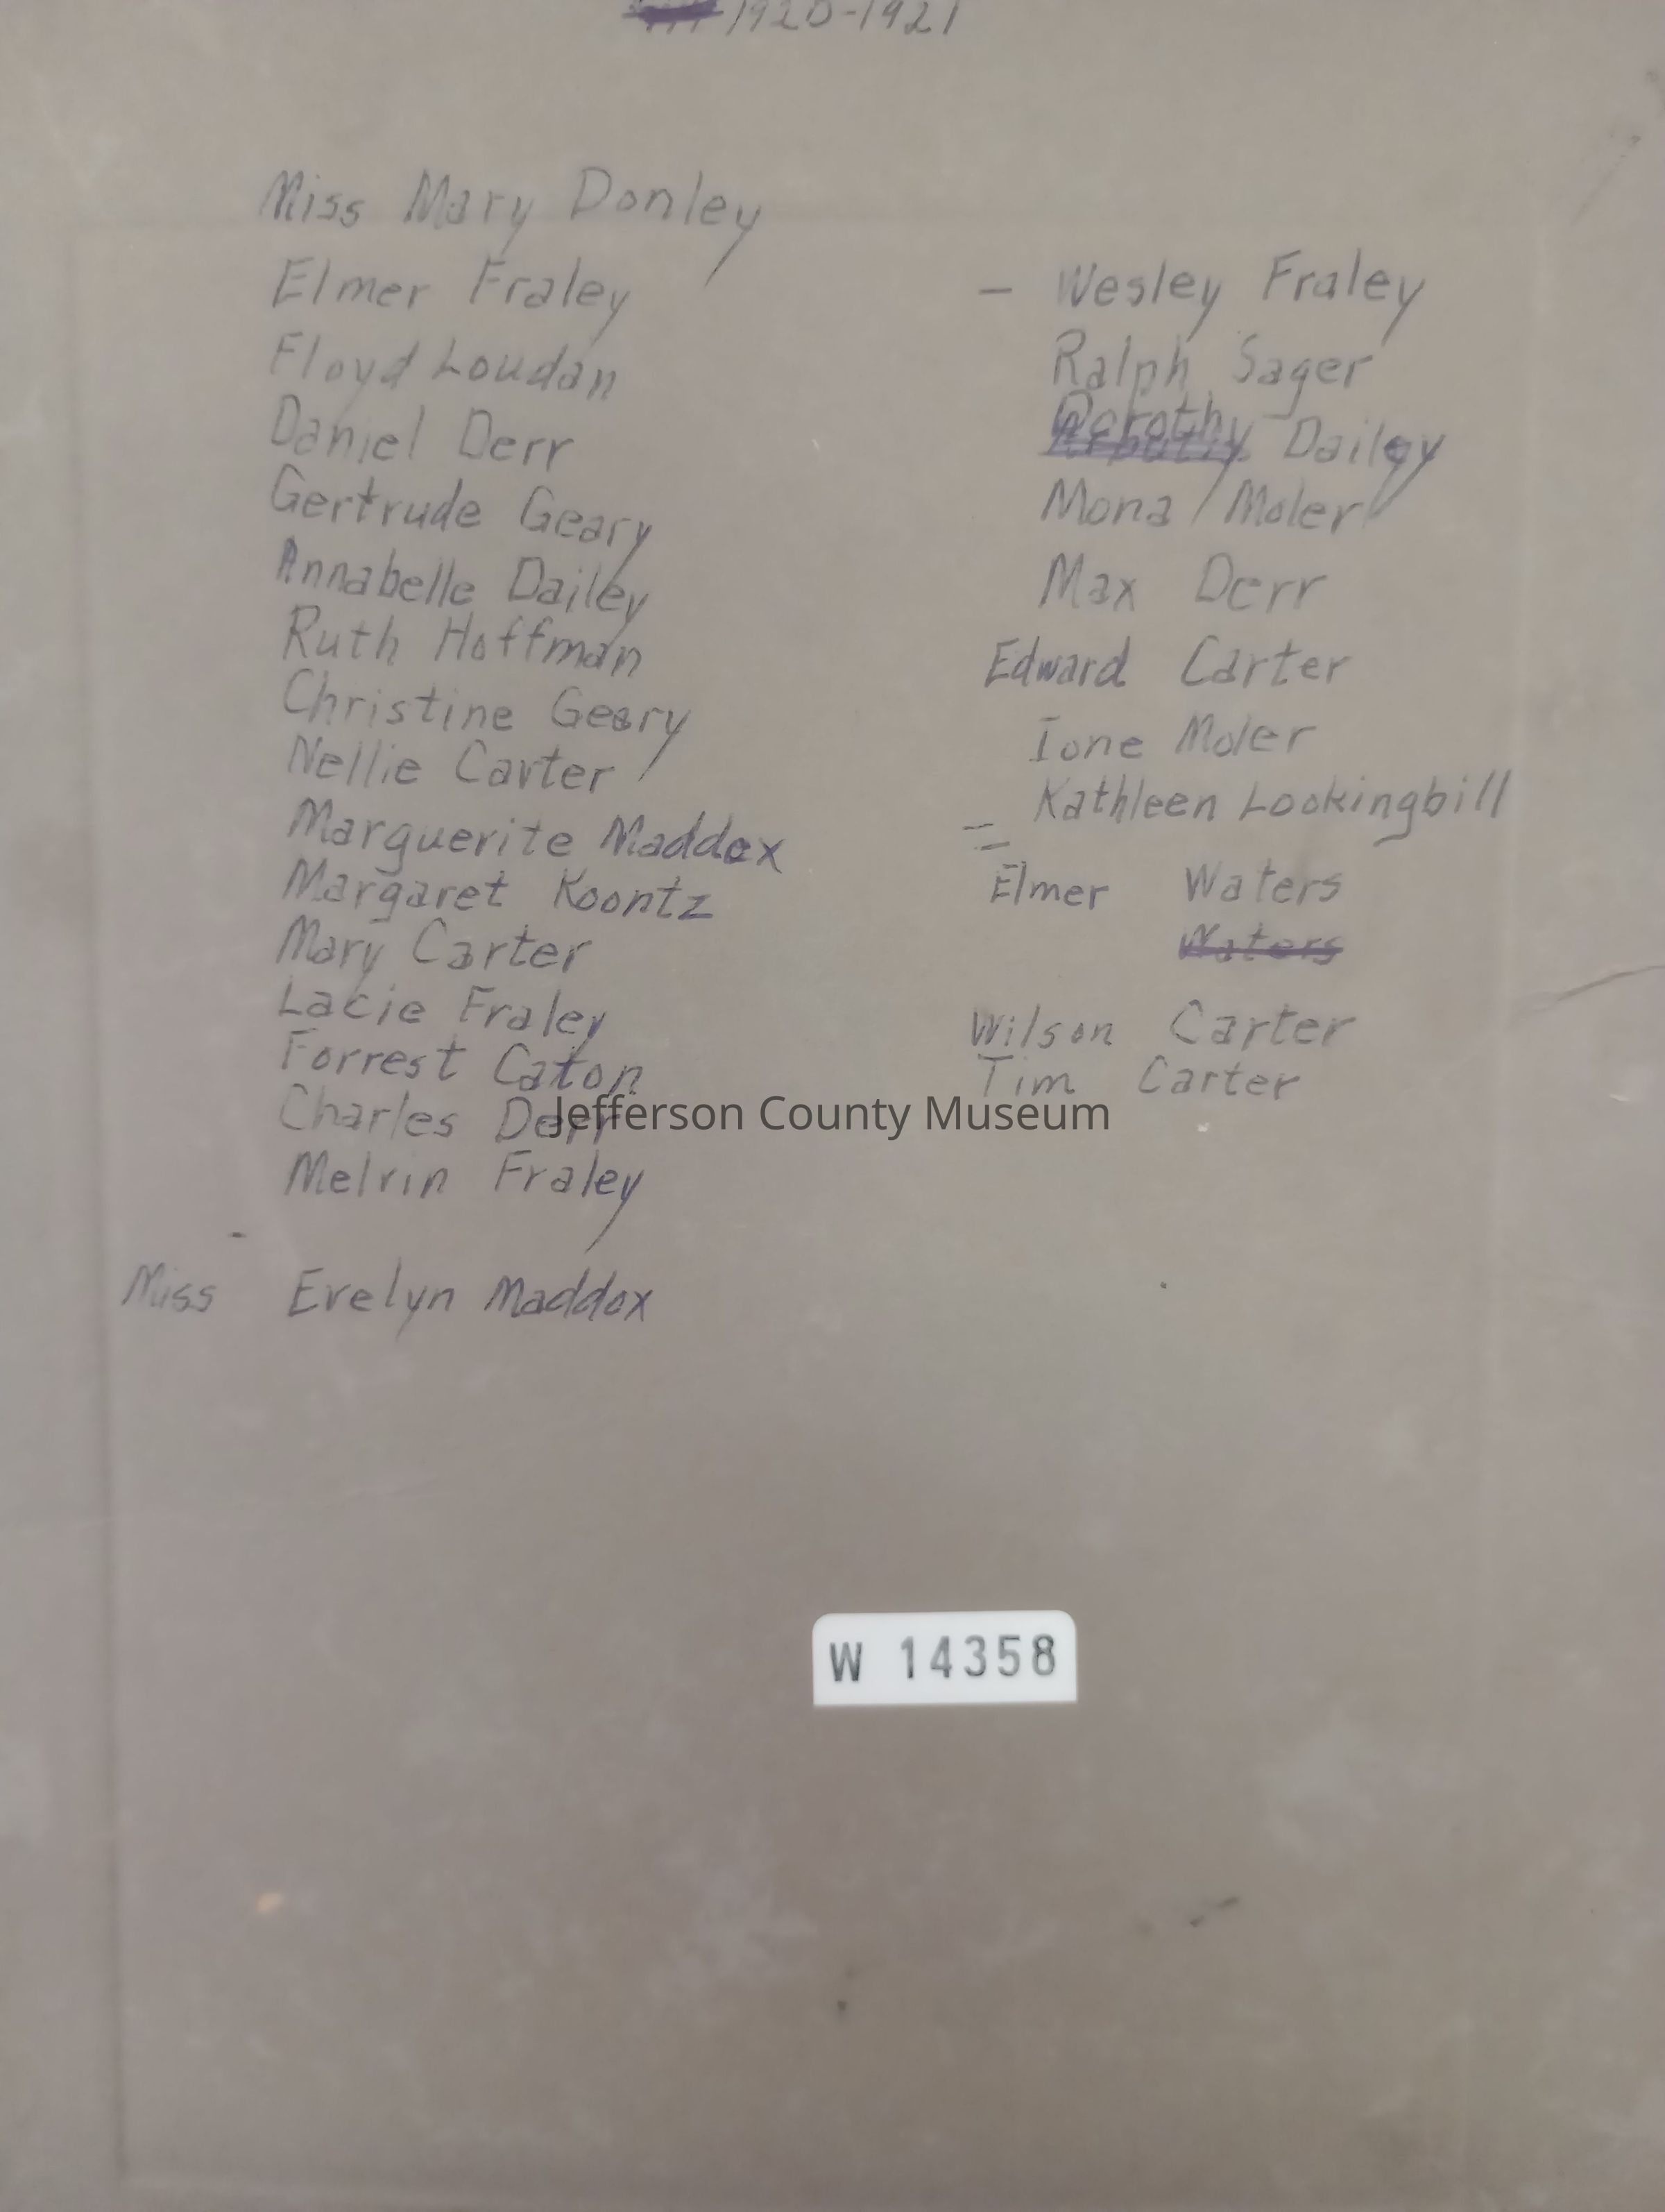 1920-1921
Miss Mary Donley
Elmer Fraley
Floyd Loudan
Daniel Derr
Gertrude Geary
Annabelle Dailey
Ruth Hoffman
Christine Geary
Nellie Carter
Marguerite Maddox
Margaret Koontz
Mary Carter
Lacie Fraley
Forrest Caton
Charles Derr
Melvin Fraley
Miss Evelyn Maddox
- Wesley Fraley
Ralph Sager
Dorothy Dailey
Mona Moler
Max Derr
Edward Carter
Ione Moler
Kathleen Lookingbill
Elmer Waters
Waters
Wilson Carter
Tim Carter
Jefferson County Museum
W 14358